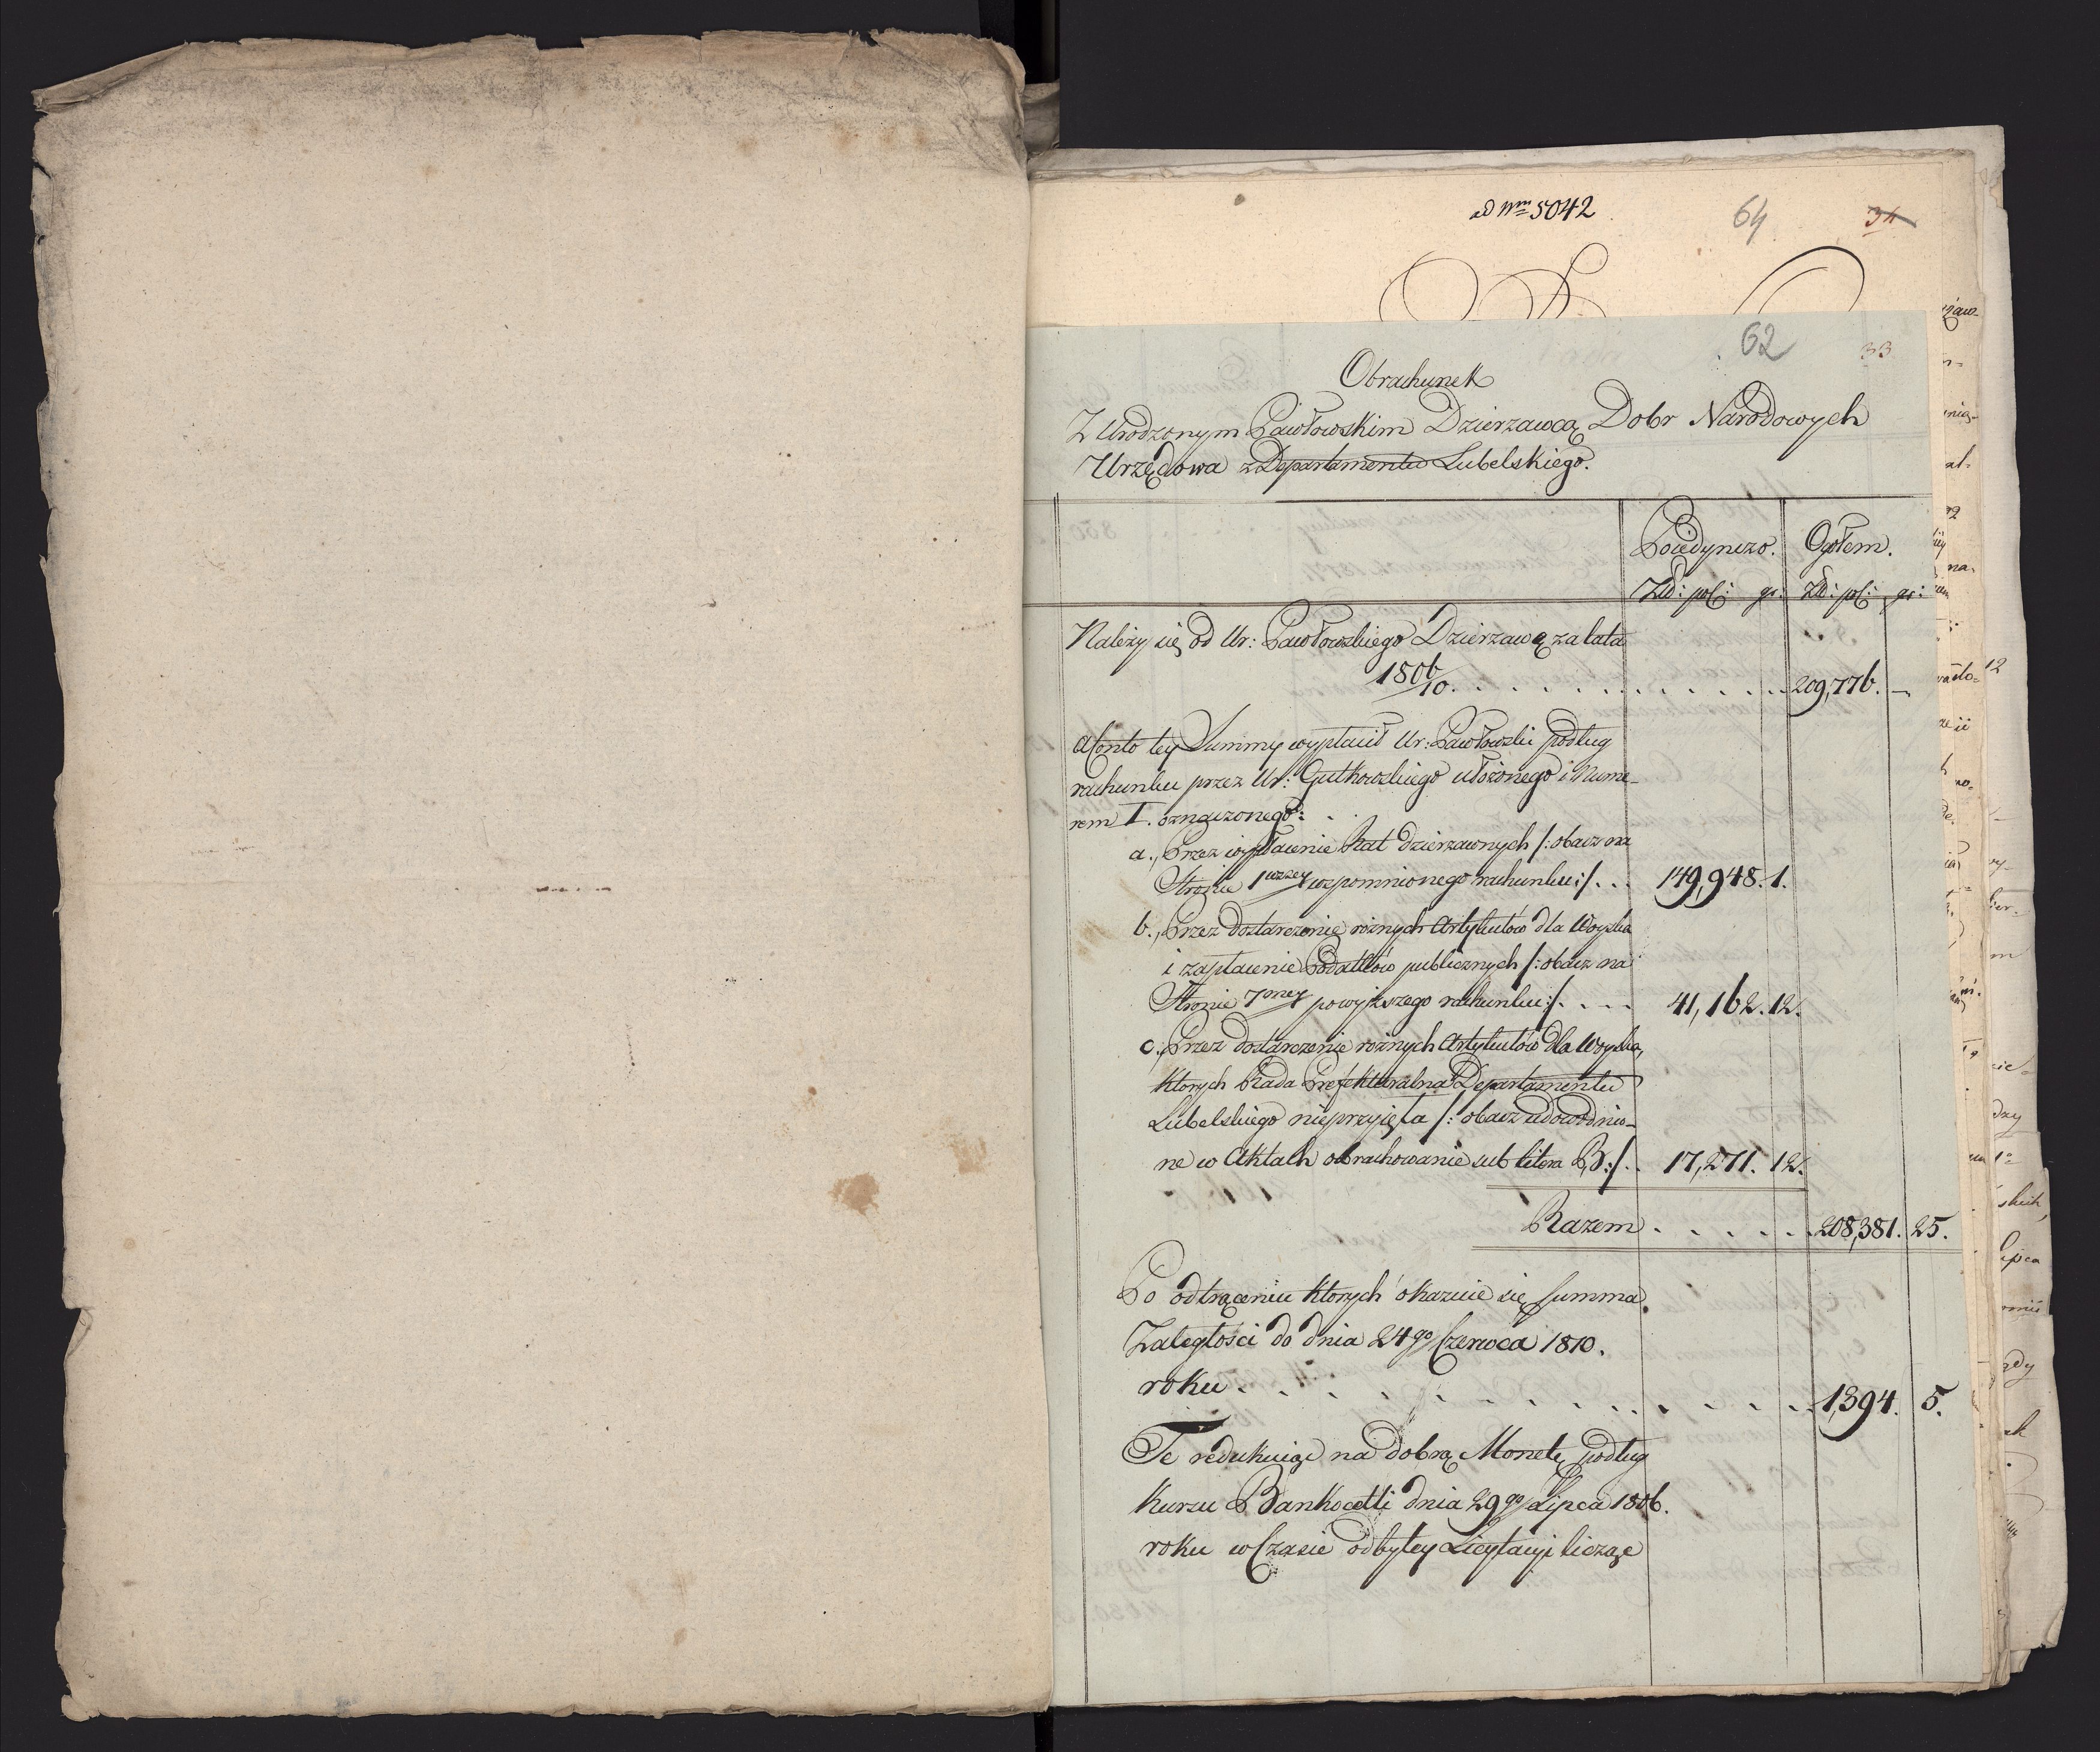 ad Nrm 5042
64
34
62
33
Obrachunek
Z Urodzonym Pawłowskim Dzierzawcą Dobr Narodowych
Urzędowa z Departamentu Lubelskiego.
Poiedynczo. Ogołem.
Zło: pol: gr. Zło: pol: gr:
Należy się od Ur: Pawłowskiego Dzierzawę za lata
1806/10. . . . . . . . . . . . . 209,776. —
a Conto tey Summy wypłacił Ur: Pawłowski podług
rachunku przez Ur: Gutkowskiego ułożonego i Nume-
rem I. oznaczonego:
a., Przez wypłacenie Rat dzierzawnych /: obacz na
Stronie 1wszey wspomnionego rachunku :/ . . . 149,948. 1.
b., Przez dostarczenie roznych Artykułów dla Woyska
i zapłacenie Podatków publicznych /: obacz na
Stronie 7mey powyższego rachunku :/ . . . . 41,162. 12.
c., Przez dostarczenie roznych Artykułów dla Woyska,
ktorych Rada Prefekturalna Departamentu
Lubelskiego nieprzyięła /: obacz udowodnio-
ne w Aktach obrachowanie sub litera B :/ . . 17,271. 12.
Razem . . . . . . 208,381. 25.
Po odtrąceniu ktorych okazuie się summa
Zaległości do dnia 24go Czerwca 1810.
roku . . . . . . . . . . . . . . . 1,394. 5.
Te redukuiąc na dobrą Monetę podług
kursu Bankocetli dnia 29go Lipca 1806.
roku w Czasie odbytey Licytacyi licząc